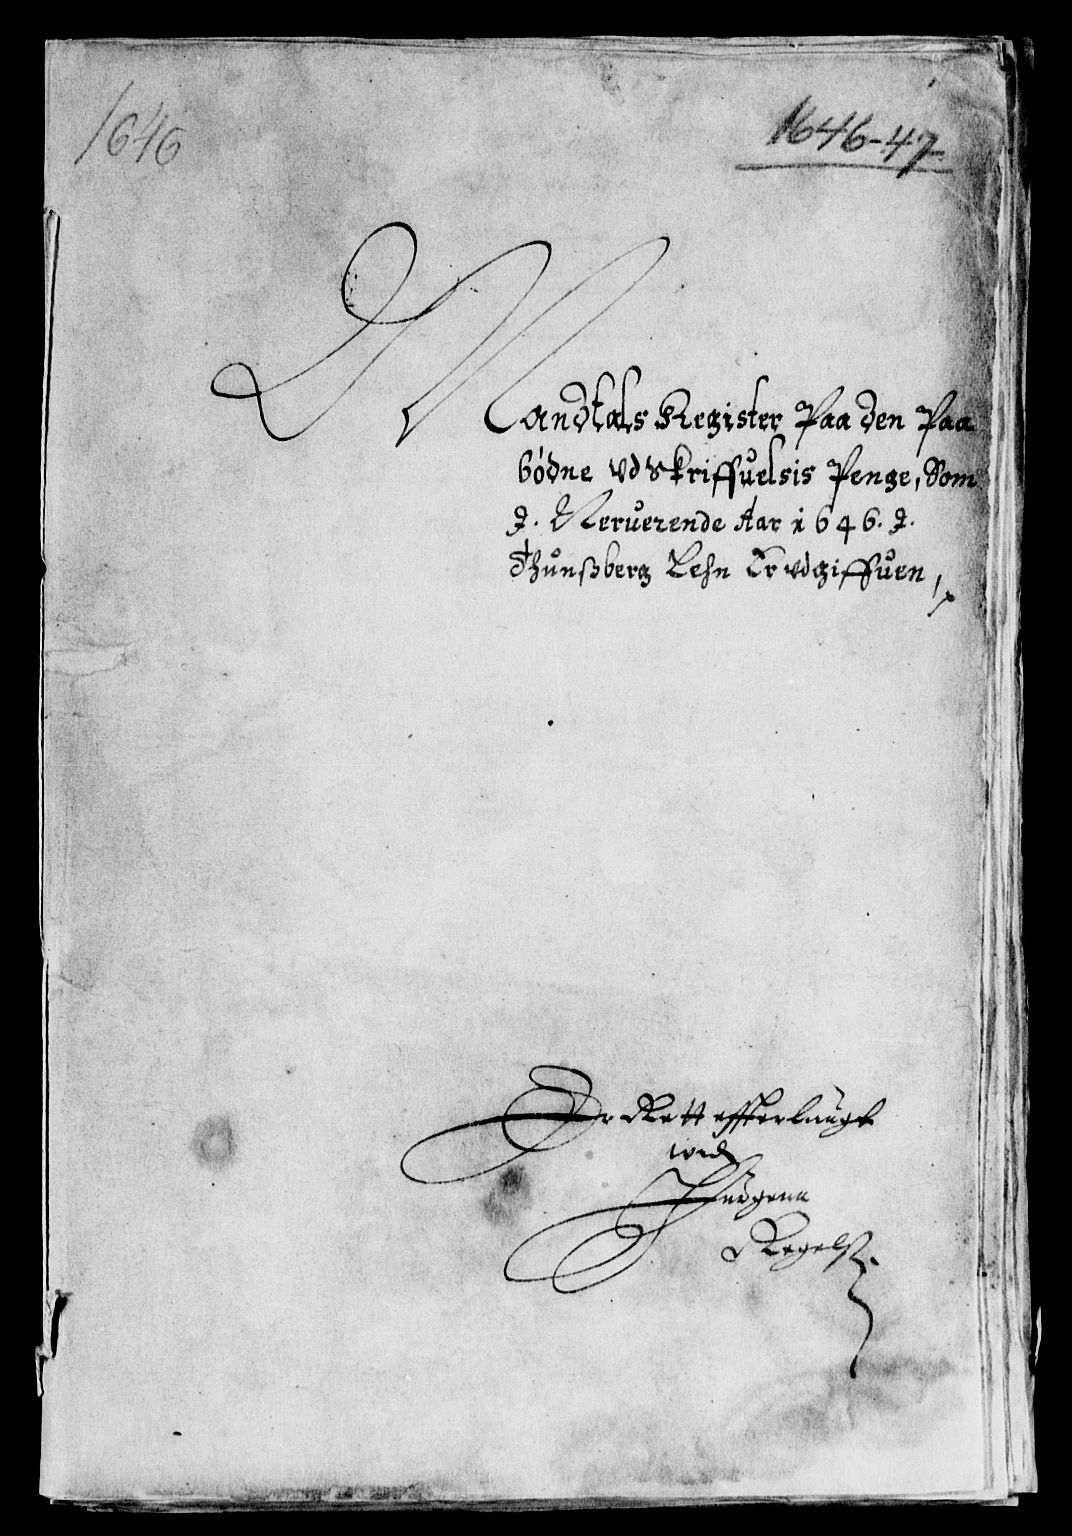 1646
1646-47
Mandtals Register Paa den Paa
bødne udskriffuelsis Penge, Som
J. Neruerende Aar 1646. J.
Thunßberg Lehn Er udgiffuen
Er Rett efferlaugt
wed
Jürgenn